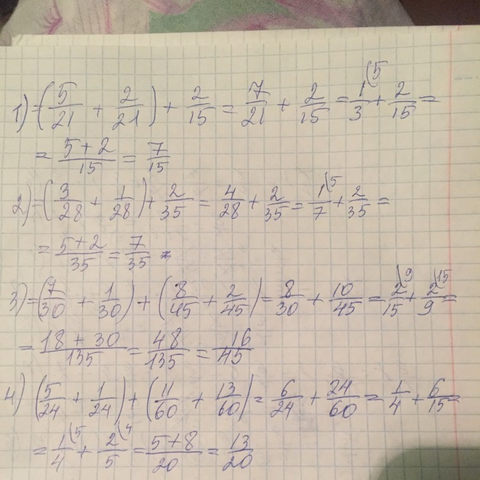 1) =(5/21 + 2/21) + 2/15 = 7/21 + 2/15 = 1\5/3 + 2/15 =
= 5+2/15 = 7/15
2) =(3/28 + 1/28) + 2/35 = 4/28 + 2/35 = 1\5/7 + 2/35 =
= 5+2/35 = 7/35
3) =(7/30 + 1/30) + (8/45 + 2/45) = 8/30 + 10/45 = 2\9/15 + 2\15/9 =
= 18+30/135 = 48/135 = 16/45
4) (5/24 + 1/24) + (11/60 + 13/60) = 6/24 + 24/60 = 1/4 + 6/15 =
= 1\5/4 + 2\4/5 = 5+8/20 = 13/20